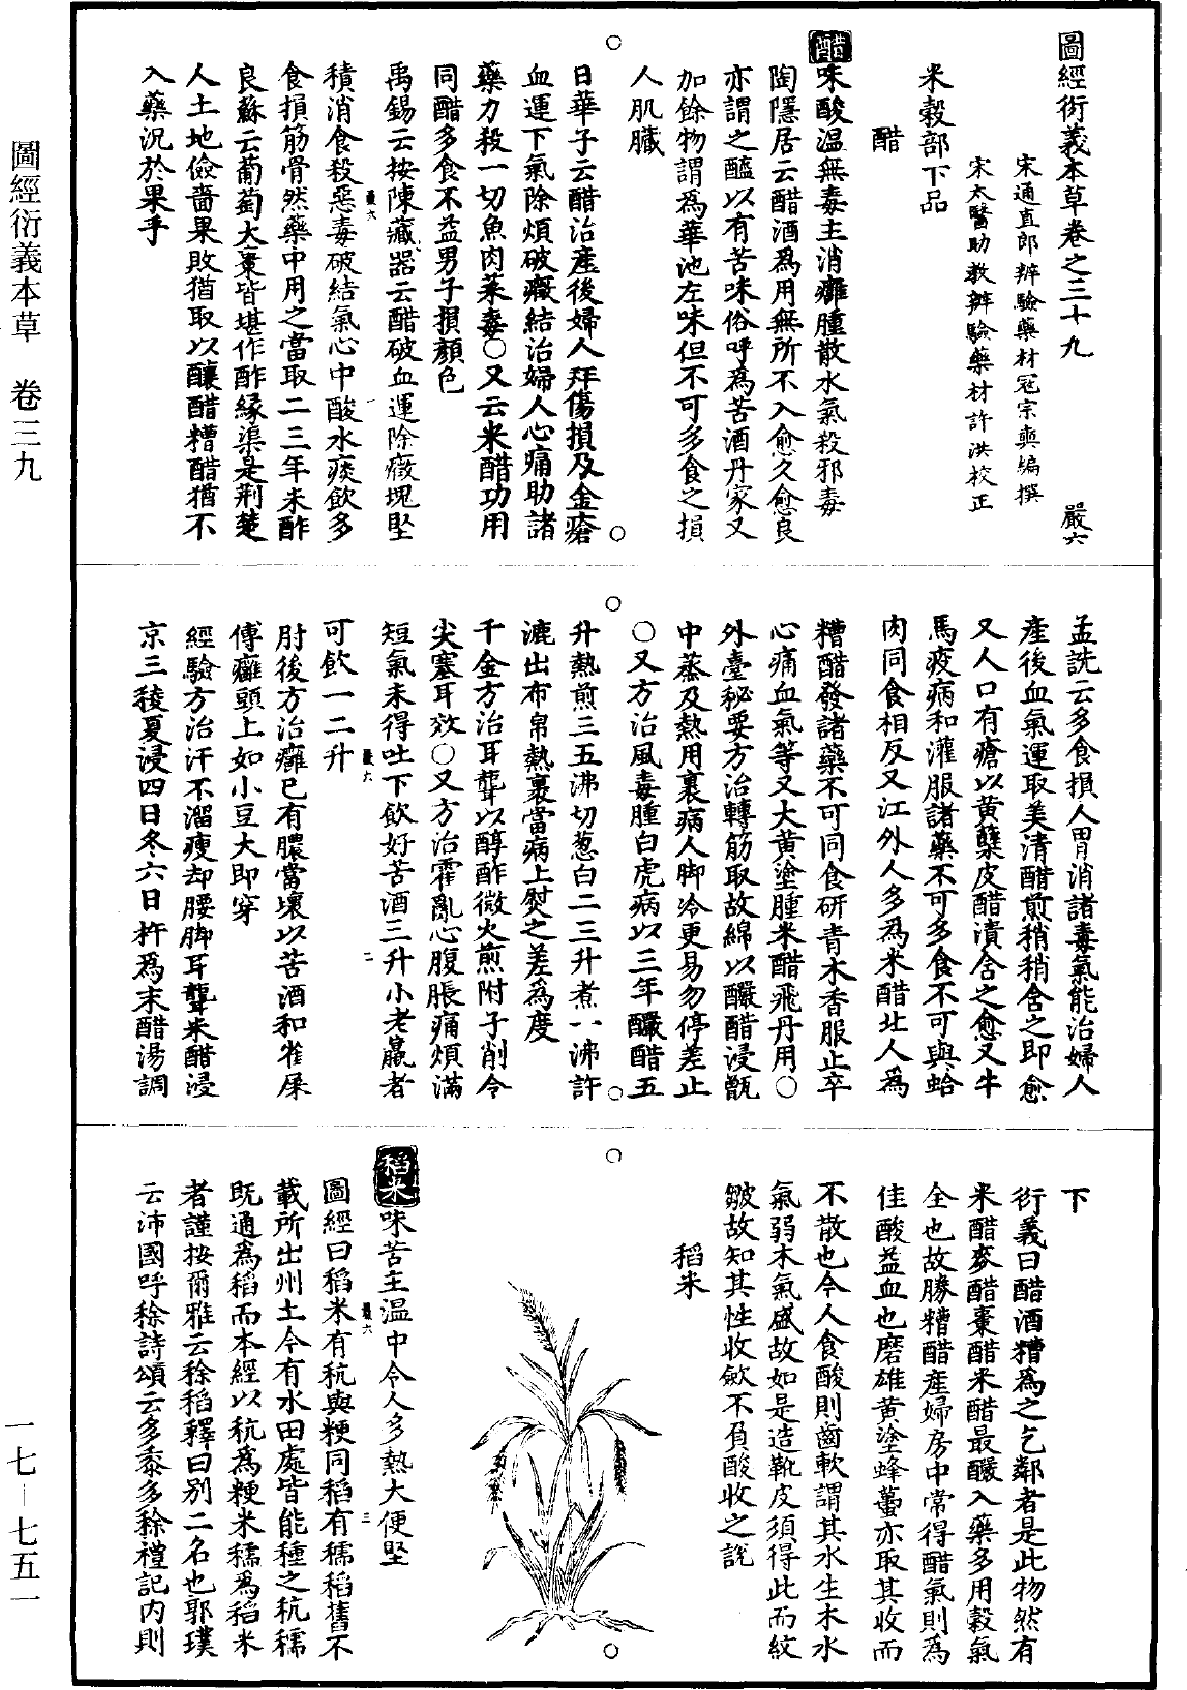 圖經衍義本草卷之三十九　嚴六
宋通直郎辨驗藥材寇宗奭編撰
宋太醫助教辨驗藥材許洪校正
米穀部下品
醋
醋味酸溫無毒主消癰腫散水氣殺邪毒
陶隱居云醋酒為用無所不入愈久愈良
亦謂之醯以有苦味俗呼為苦酒丹家又
加餘物謂為華池左味但不可多食之損
人肌臟
日華子云醋治產後婦人并傷損及金瘡
血運下氣除煩破癥結治婦人心痛助諸
藥力殺一切魚肉菜毒○又云米醋功用
同醋多食不益男子損顏色
禹錫云按陳藏器云醋破血運除癥塊堅
積消食殺惡毒破結氣心中酸水痰飲多
食損筋骨然藥中用之當取二三年米酢
良蘇云葡萄大棗皆堪作酢緣渠是荆楚
人土地儉嗇果敗猶取以釀醋糟醋猶不
入藥況於果乎
孟詵云多食損人胃消諸毒氣能治婦人
產後血氣運取美清醋煎稍稍含之即愈
又人口有瘡以黃蘖皮醋漬含之愈又牛
馬疫病和灌服諸藥不可多食不可與蛤
肉同食相反又江外人多為米醋北人為
糟醋發諸藥不可同食研青木香服止卒
心痛血氣等又大黃塗腫米醋飛丹用○
外臺秘要方治轉筋取故綿以釅醋浸甑
中蒸及熱用裹病人脚冷更易勿停差止
○又方治風毒腫白虎病以三年釅醋五
升熱煎三五沸切葱白二三升煮一沸許
漉出布帛熱裹當病上熨之差為度
千金方治耳聾以醇酢微火煎附子削令
尖塞耳效○又方治霍亂心腹脹痛煩滿
短氣未得吐下飲好苦酒三升小老羸者
可飲一二升
肘後方治癰已有膿當壞以苦酒和雀屎
傅癰頭上如小豆大即穿
經驗方治汗不溜瘦却腰脚耳聾米醋浸
京三稜夏浸四日冬六日杵為末醋湯調
下
衍義曰醋酒糟為之乞鄰者是此物然有
米醋麥醋棗醋米醋最釅入藥多用穀氣
全也故勝糟醋產婦房中常得醋氣則為
佳酸益血也磨雄黃塗蜂蠆亦取其收而
不散也今人食酸則齒軟謂其水生木水
氣弱木氣盛故如是造靴皮須得此而紋
皺故知其性收斂不負酸收之說
稻米
稻米味苦主溫中令人多熱大便堅
圖經曰稻米有秔與粳同稻有稬稻舊不
載所出州土今有水田處皆能種之秔稬
既通為稻而本經以秔為粳米稬為稻米
者謹按爾雅云稌稻釋曰別二名也郭璞
云沛國呼稌詩頌云多黍多稌禮記內則
圖經衍義本草　卷三九
一七—七五一